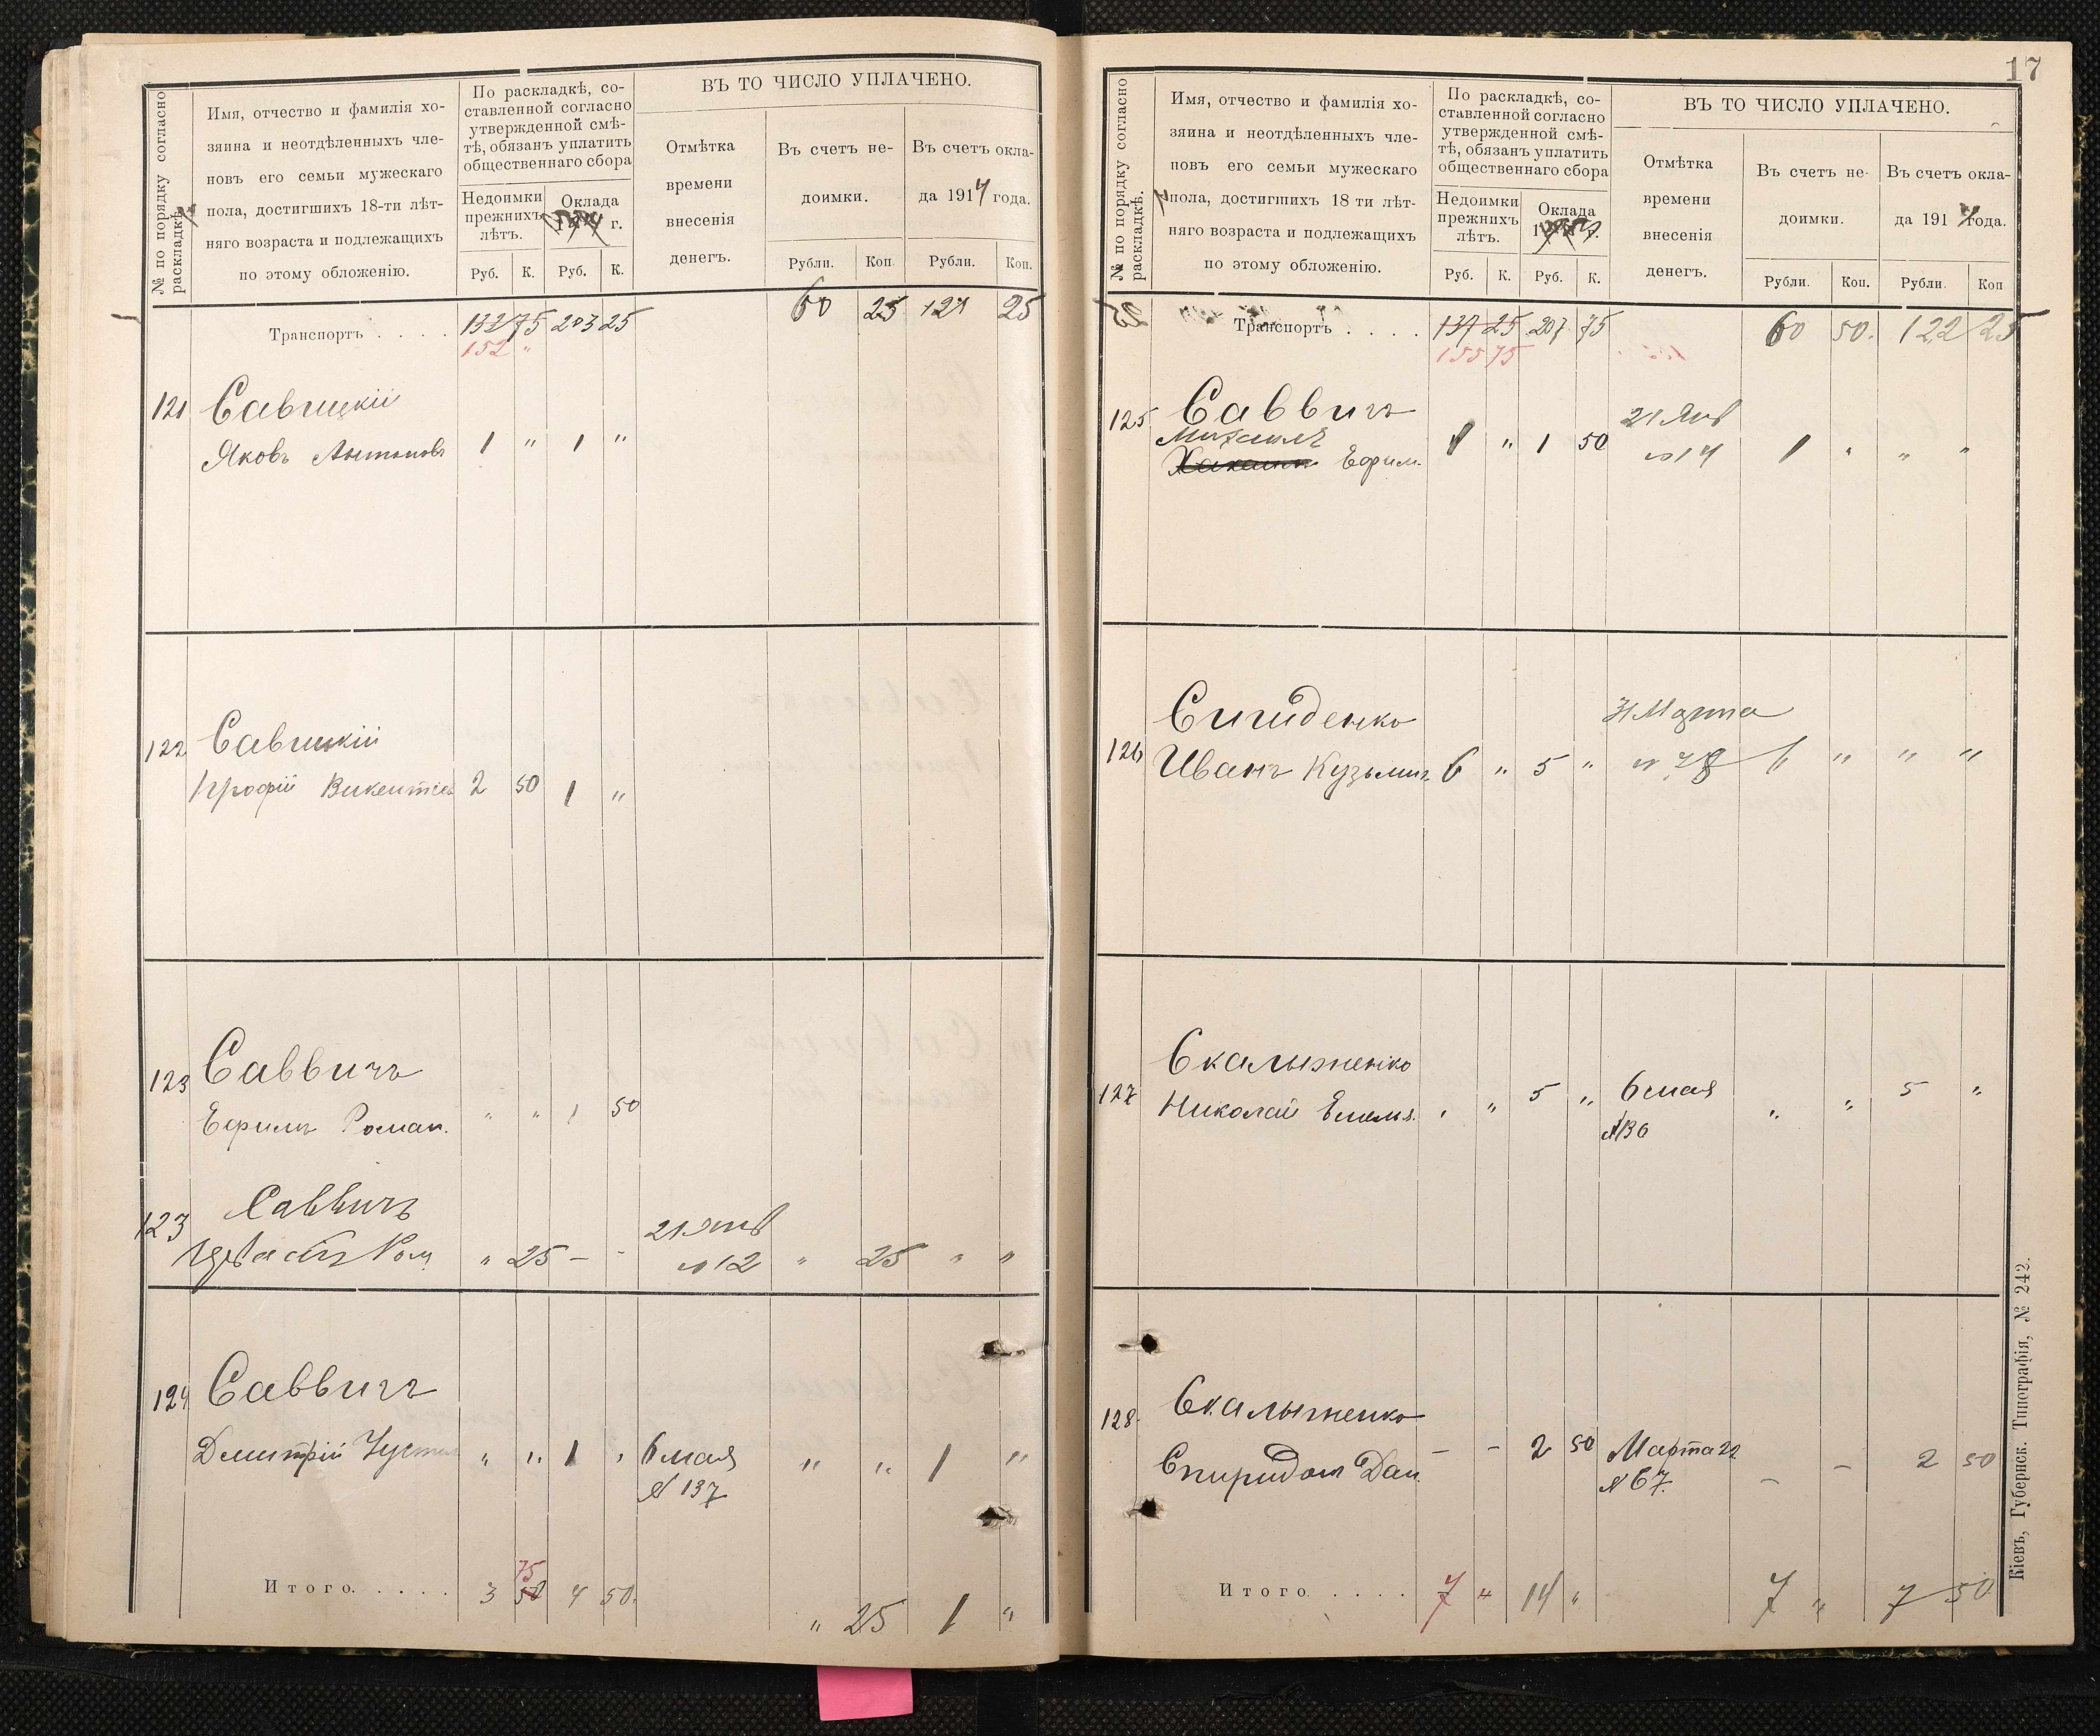 № по порядку согласно
раскладкѣ.
Имя, отчество и фамилія хо-
зяина и неотдѣленныхъ чле-
новъ его семьи мужескаго
пола, достигшихъ 18-ти лѣт-
няго возраста и подлежащихъ
по этому обложенію.
По раскладкѣ, со-
ставленной согласно
утвержденной смѣ-
тѣ, обязанъ уплатить
общественнаго сбора
Недоимки
прежнихъ
лѣтъ.
Оклада
г.
Руб. К. Руб. К.
ВЪ ТО ЧИСЛО УПЛАЧЕНО.
Отмѣтка
времени
внесенія
денегъ.
Въ счетъ не-
доимки.
Въ счетъ окла-
да 1914 года.
Рубли. Коп Рубли. Коп.
Транспортъ . . . . 132 75 203 25 60 25 121 25
152 "
121 Савицкій
Яковъ Антоновъ 1 " 1 "
122 Савицкій
Викентіев 2 50 1 "
123 Саввичъ
Ефимъ Роман. " " 1 50
123 Саввичъ
Ром " 25 - - 21 Янв
№ 12 " 25 " "
124 Саввичъ
Дмитрій " " 1 " 6 мая " " 1 "
№ 137
75
Итого. . . . . 3 50 4 50.
" 25 1 "
17
№ по порядку согласно
раскладкѣ.
Имя, отчество и фамилія хо-
зяина и неотдѣленныхъ чле-
новъ его семьи мужескаго
пола, достигшихъ 18 ти лѣт-
няго возраста и подлежащихъ
по этому обложенію.
По раскладкѣ, со-
ставленной согласно
утвержденной смѣ-
тѣ, обязанъ уплатить
общественнаго сбора
Недоимки
прежнихъ
лѣтъ.
Оклада
г.
Руб. К. Руб. К.
ВЪ ТО ЧИСЛО УПЛАЧЕНО.
Отмѣтка
времени
внесенія
денегъ.
Въ счетъ не-
доимки.
Въ счетъ окла-
да 1914 года.
Рубли. Коп. Рубли. Коп
Транспортъ . . . . 137 25 207 75 60 50. 122 25
155 75
125 Саввичъ 21 Янв
Михаилъ
Ефим. 1 " 1 50 № 14 1 " " "
126 Сигиденко Марта
Иванъ Кузьмич 6 " 5 " № 48 6 " " "
127 Скалыженко
Николай Емелья. " " 5 " 6 мая " " 5 "
№ 136
128. Скалыженко
Спиридон Дан. - - 2 50 Марта 22 - - 2 50
№ 67.
Итого . . . . 7 " 14 " 7 " 7 50
Кіевъ, Губернск. Типографія, № 242.